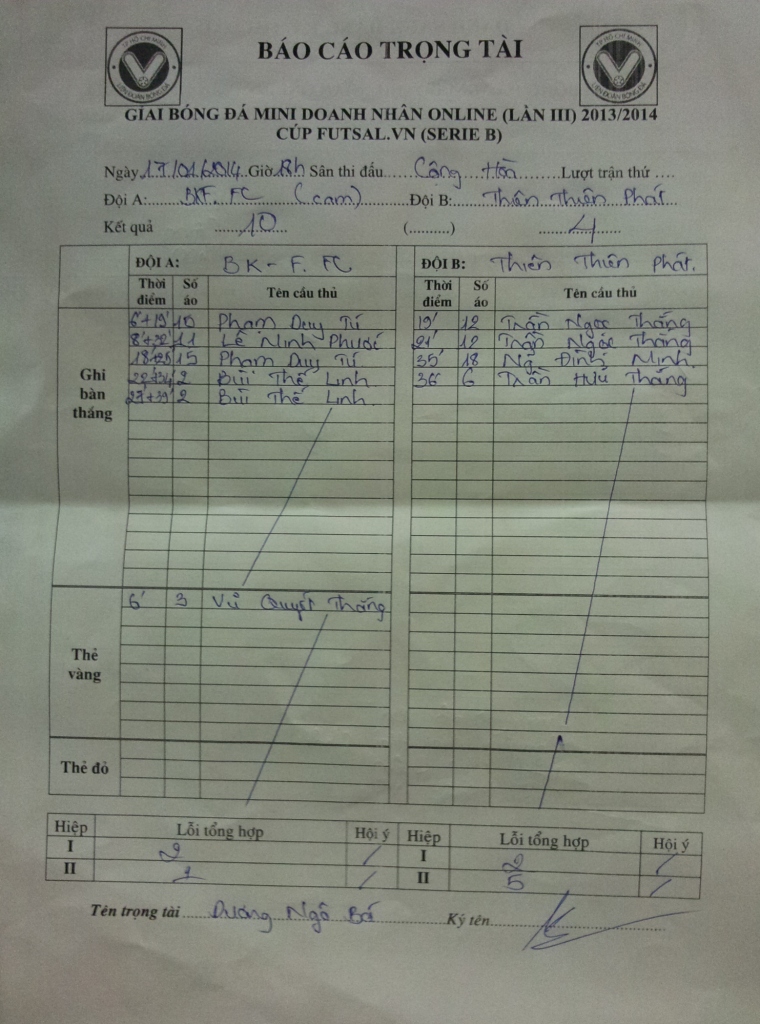 BÁO CÁO TRỌNG TÀI
GIẢI BÓNG ĐÁ MINI DOANH NHÂN ONLINE (LẦN III) 2013/2014
CÚP FUTSAL.VN (SERIE B)
Ngày 17/01/2014 Giờ Sân thi đấu Cộng Hòa Lượt trận thứ ....
Đội A: BKF. FC (cam) Đội B: Thiên Thiên Phát
Kết quả 10 (..........) 4
ĐỘI A: BK - F. FC ĐỘI B: Thiên Thiên Phát.
Thời điểm Số áo Tên cầu thủ Thời điểm Số áo Tên cầu thủ
Ghi bàn thắng
6'+19' 10 Phạm Duy Tú 19' 12 Trần Ngọc Thắng
11 Lê Minh Phước 21' 12 Trần Ngọc Thắng
15 Phạm Duy Tú 35' 18 Đình Minh
2 Bùi Thế Linh 36' 6 Trần Hữu Thắng
27'+39' 2 Bùi Thế Linh
Thẻ vàng
6' 3 Vũ Quyết Thắng
Thẻ đỏ
Hiệp Lỗi tổng hợp Hội ý Hiệp Lỗi tổng hợp Hội ý
I 2 / I 2 /
II 1 / II 5 /
Tên trọng tài Dương Ngô Bá Ký tên